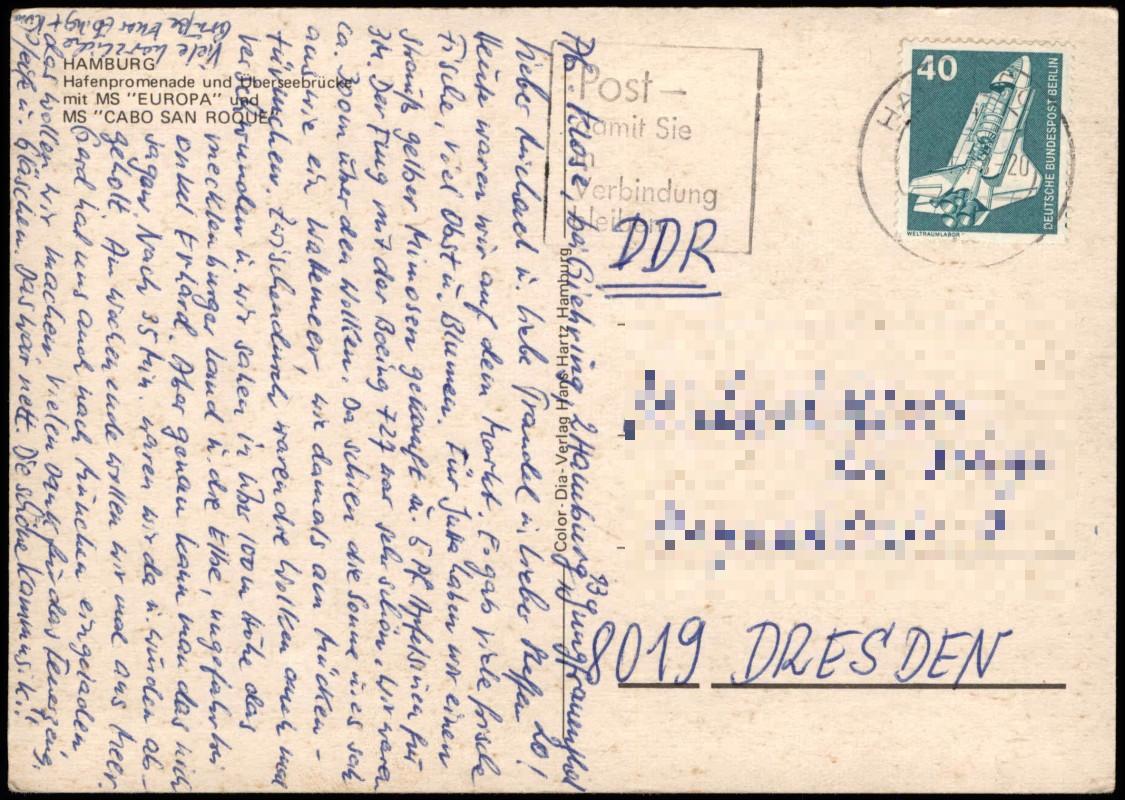 HAMBURG
Hafenpromenade und Überseebrücke
mit MS "EUROPA" und
MS "CABO SAN ROQUE"
Post –
damit Sie
in
Verbindung
bleiben
40
DEUTSCHE BUNDESPOST BERLIN
WELTRAUMLABOR
20
DDR
8019 DRESDEN
Color-Dia-Verlag Hans Hartz Hamburg
Abs. Klose, bei Giehring, 2 Hamburg
Lieber Michael u. liebe Traudel u. lieber Steffen
Heute waren wir auf dem Markt. Es gab viele frische
Fische, viel Obst u. Blumen. Für Jutta haben wir einen
Strauß gelber Mimosen gekauft u. 5 Pf. Apfelsinen für
3M. Der Flug mit der Boeing 727 war sehr schön. Wir waren
ca. über den Wolken. Da schien die Sonne u. es sah
aus wie ein Wattemeer wie damals am
Türmchen. Zwischendurch waren die Wolken auch mal
verschwunden u. wir sahen in über Höhe das
Mecklenburger Land u. die Elbe, ungefähr bei
Onkel Erhard. Aber genau kann man das nicht
sagen. Nach 35 Min. waren wir da u. wurden ab-
geholt. Am Wochenende wollen wir mal ans Meer.
Gerd hat uns auch nach München eingeladen
das wollen wir machen. Vielen Dank für das Feuerzeug,
Pfeife u. Fläschchen. Das war nett. Die schöne Kammusik!!
Viele herzliche
Grüße